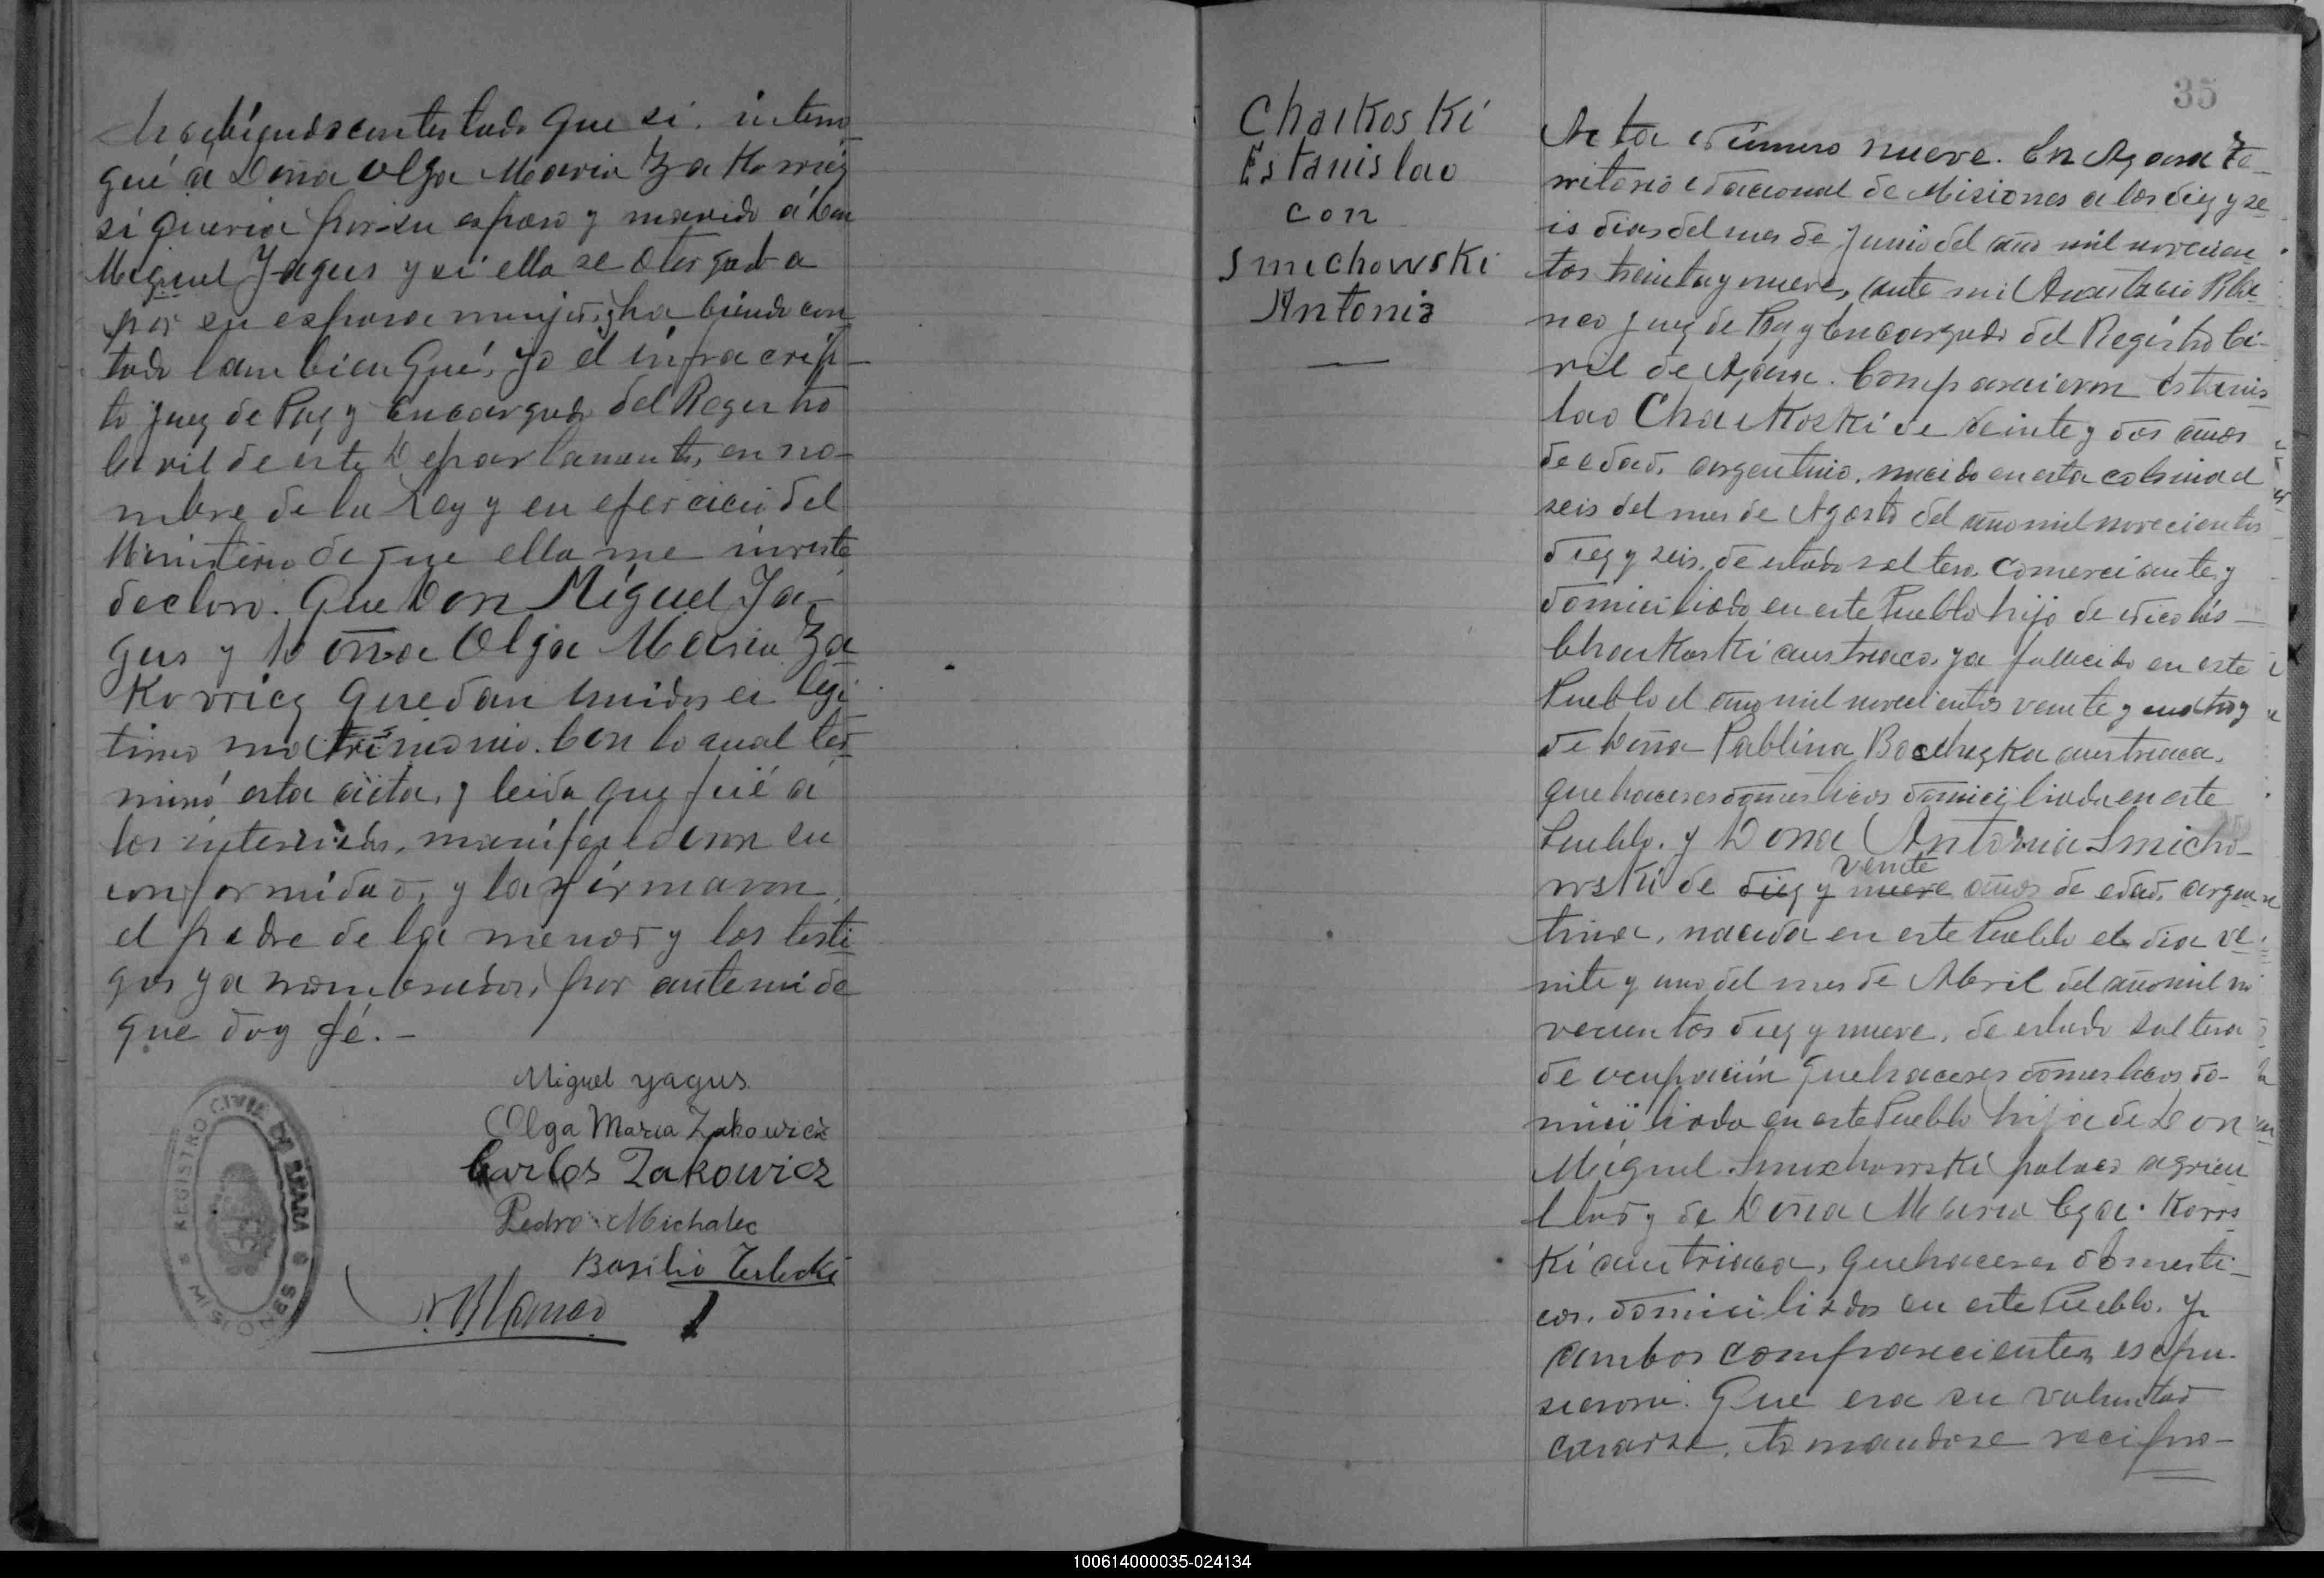 Habiendo contestado que si. interro-
gué á Doña Olga Maria Zakowicz
si queria por su esposo y marido á Don
Miguel Jagus y si ella se otorgaba
por su esposa mujer, y habiendo con
tado tambien Qué, yo el infracrip-
to Juez de Paz y Encargado del Registro
Civil de este Departamento, en no-
mbre de la Ley y en ejercicio del
Ministerio de que ella me inviste
declaro. Que Don Miguel Ja-
gus y Doña Olga Maria Za
Kowicz quedan unidos en legi
timo matrimonio. Con lo cual ter-
minó esta acta, y leida que fué á
los interesados, manifestaron su
conformidad, y la firmaron,
el padre de la menor y los testi
gos ya nombrados, por ante mi de
que doy fé.-
Miguel yagus
Olga Maria Zakowicz
Carlos Zakowicz
Pedro Michalec
Basilio Terlecki
A. Blanco
REGISTRO CIVIL DE
MISIONES
35
Chaikoski
Estanislao
con
Smichowski
Antonia
Acta Número nueve. En Azara Te-
rritorio Nacional de Misiones a los diez y se
is dias del mes de Junio del año mil novecien
tos treinta y nueve, ante mi Anastacio Bla
nco Juez de Paz y Encargado del Registro Ci-
vil de Azara. Comparecieron Estanis
lao Chaikoski de veinte y dos años
de edad, argentino, nacido en esta colonia el
seis del mes de Agosto del año mil novecientos
diez y seis, de estado soltero, comerciante y
domiciliado en este Pueblo hijo de Nicolás
Chaikoski austriaco, ya fallecido en este
Pueblo el año mil novecientos veinte y cuatro y
de Doña Pablina austriaca,
quehaceres domesticos domiciliada en este
Pueblo. y Dona Antonia Smicho-
wski de diez y nueve veinte años de edad, argen
tina, nacida en este Pueblo el dia ve
inte y uno del mes de Abril del año mil no
vecientos diez y nueve, de estado soltera
de ocupación quehaceres domesticos do-
miciliada en este Pueblo hija de Don
Miguel Smichowski polaco agricu
ltor y de Doña Maria Czai-Kows
ki austriaca, quehaceres domesti-
cos, domiciliados en este Pueblo. Y
ambos comparecientes espu-
sieron. Que era su voluntad
casarse, tomandose recipro-